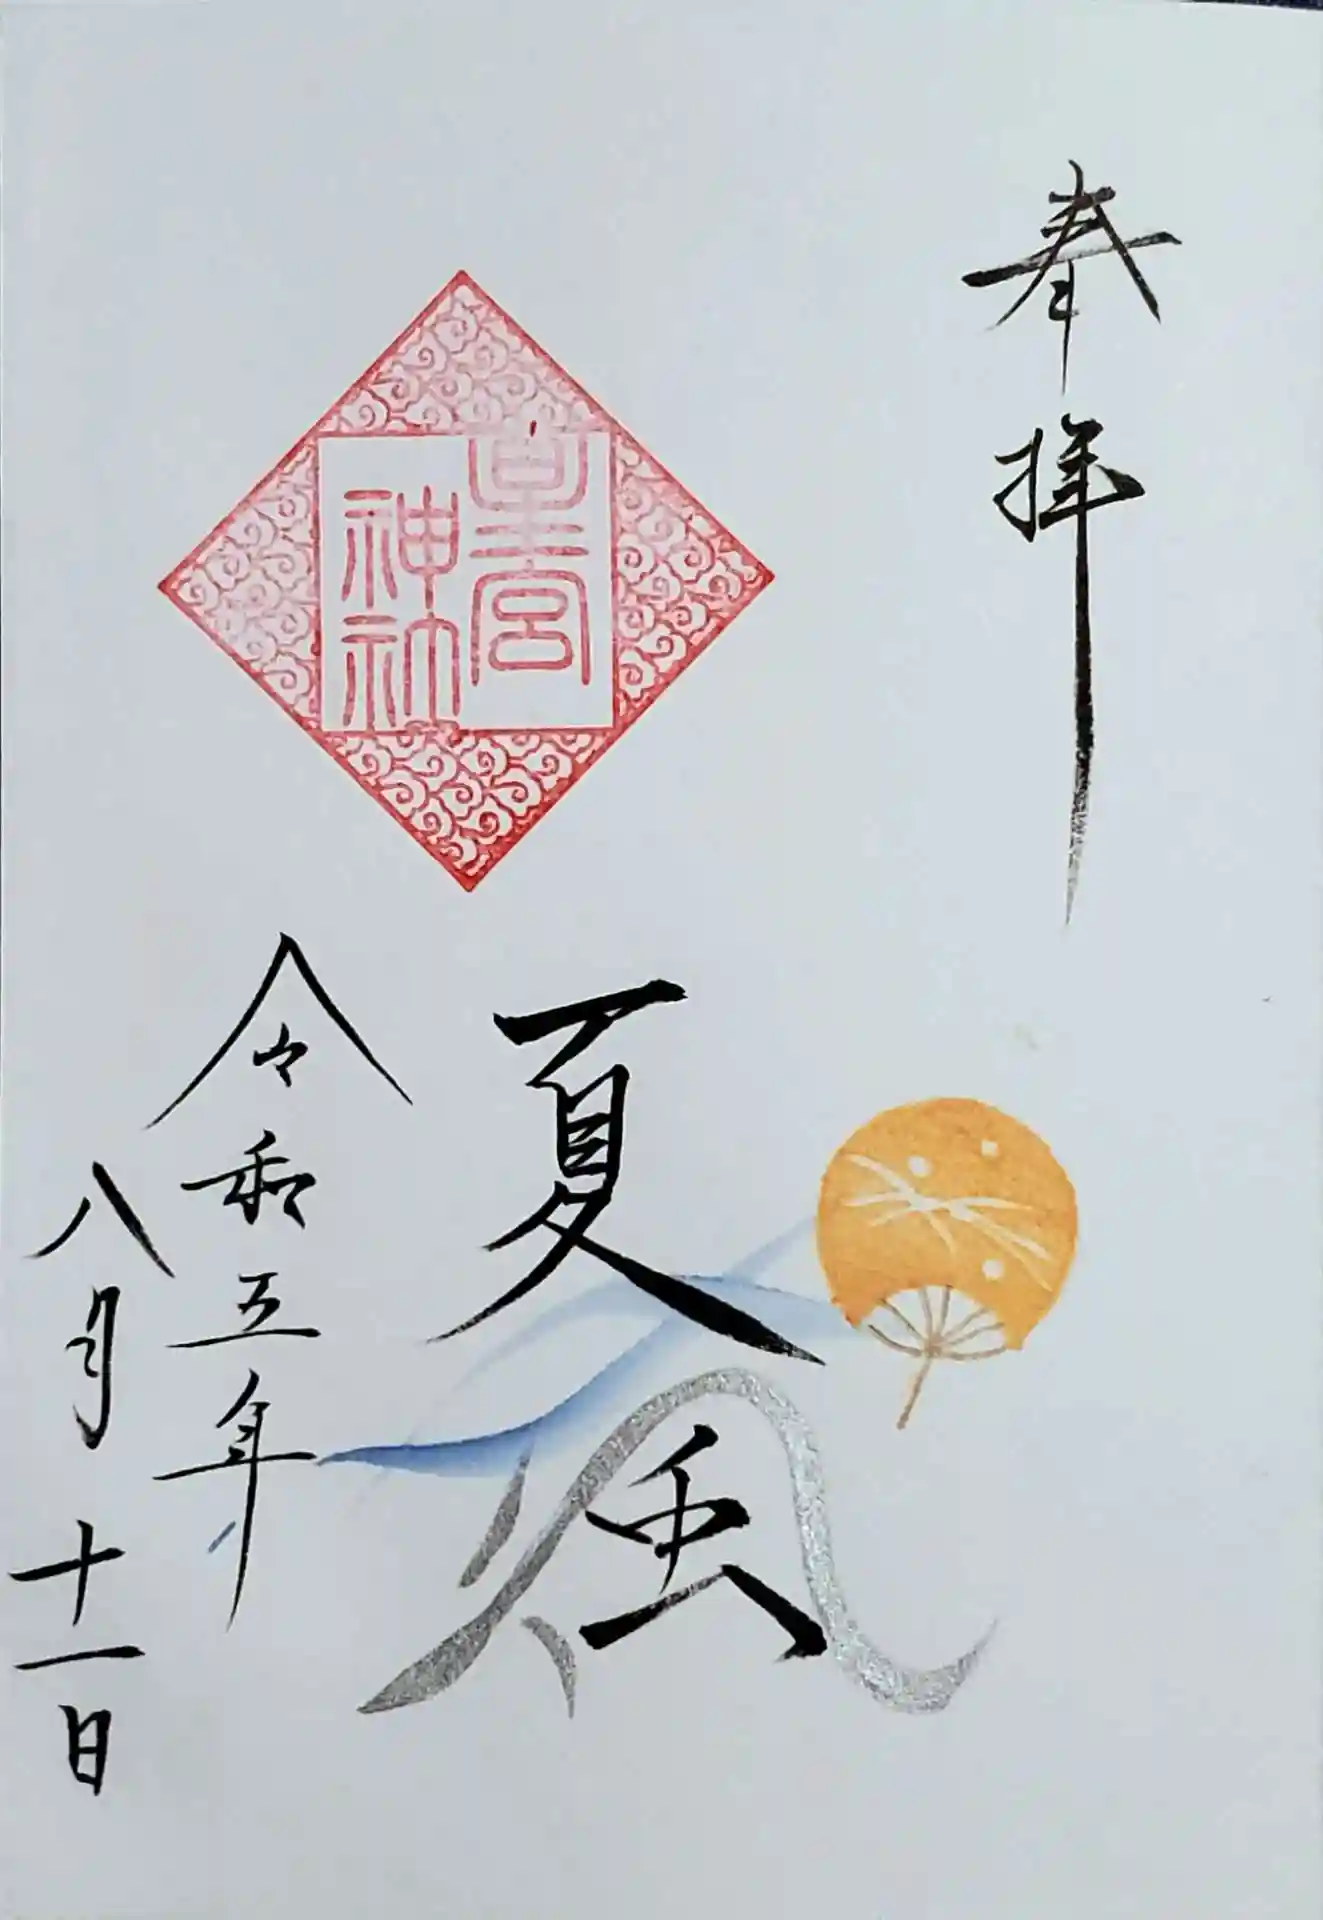 奉拝
皇宮
神社
夏風
令和五年
八月十一日